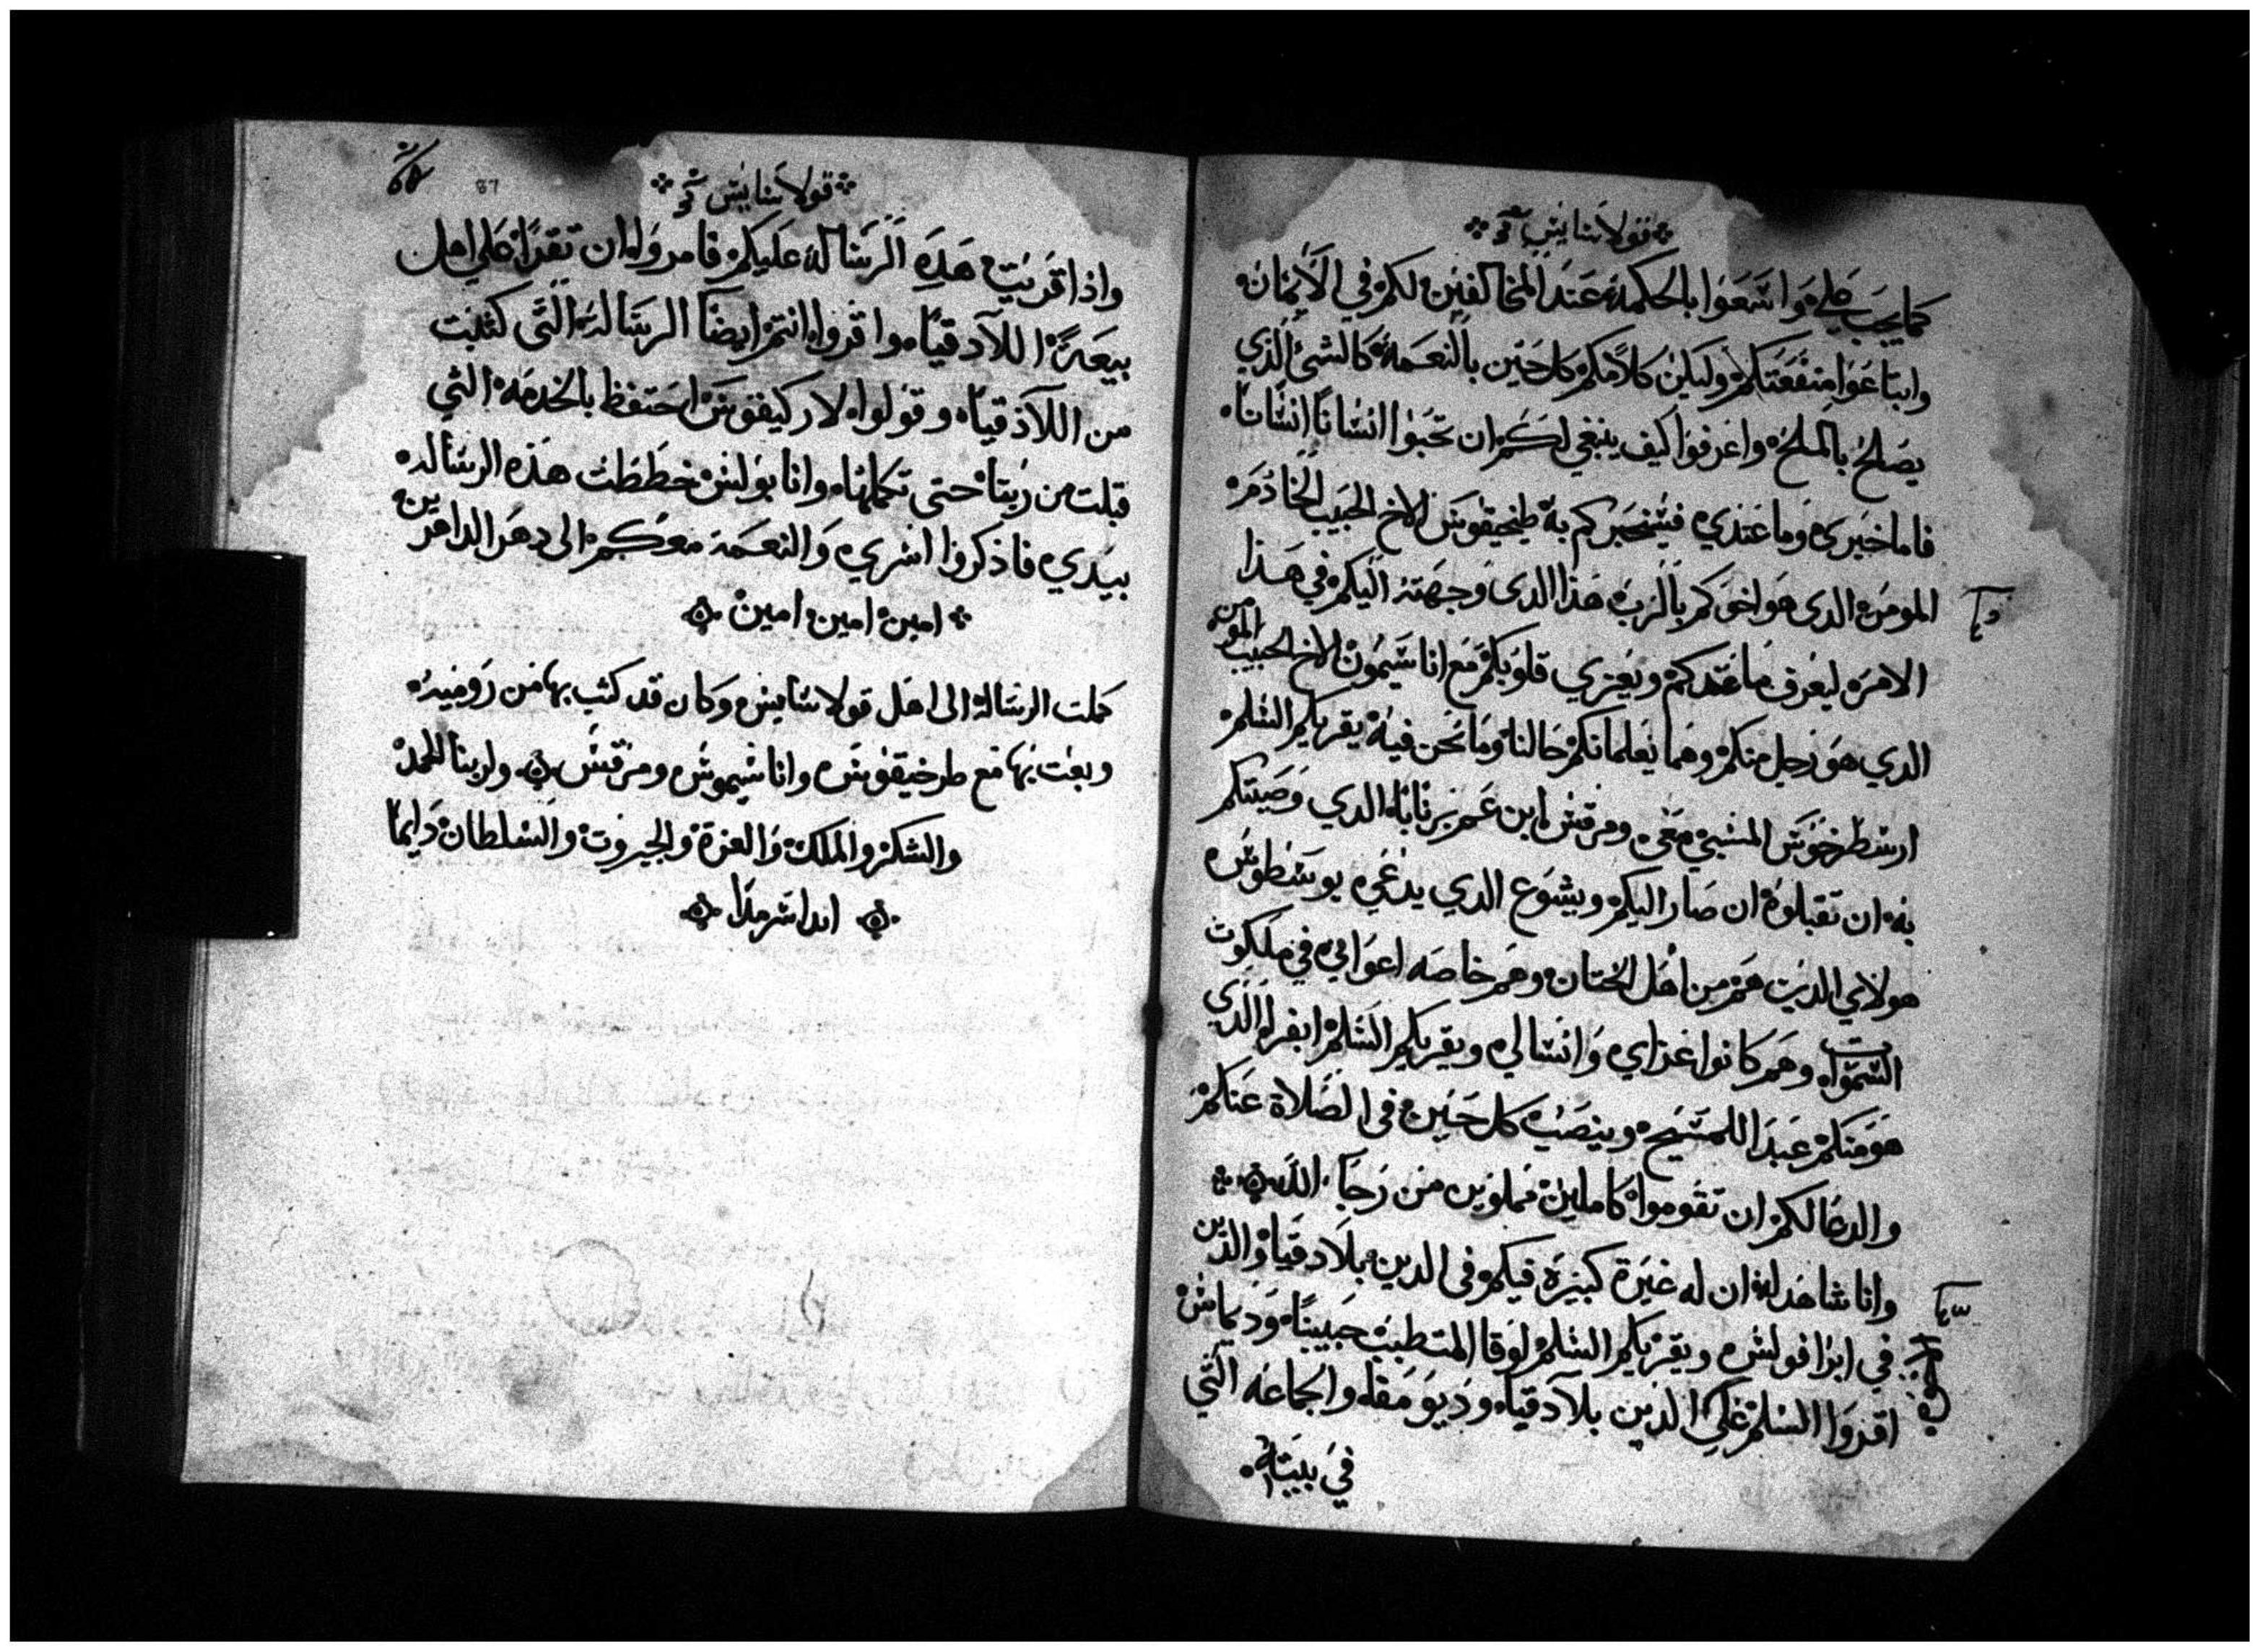 قولاسايس
كما يجب علي واسعوا بالحكمة عند المخالفين لكم في الايمان
وابتاعوا منفعتكم وليكن كلامكم كل حين بالنعمة كالشي الذي
يصلح بالملح واعرفوا كيف ينبغي لكم ان تحبوا انسانًا انسانًا
فاما خبري وما عندي فسنخبركم به طيخيقوس الاخ الحبيب الخادم
المومن الدى هو اخوكم بالرب هذا الدى وجهته اليكم في هذا
الامر ليعرف ما عندكم ويعزي قلوبكم مع اناسيمون الاخ الحبيب المومن
الدي هو رجل منكم وهما يعلمانكم حالنا وما نحن فيه يقريكم السلم
ارسطرخوس المسبي معي ومرقس ابن عم برنابا الدي وصيتكم
به ان تقبلوه ان صار اليكم ويشوع الدي يدعي يوسطوس
هولاي الدين هم من اهل الختان وهم خاصه اعواني في ملكوت
السموات وهم كانوا عزاي وانسالي ويقريكم السلم ابفرا الذي
هو منكم عبدا للمسيح وينصب كل حين في الصلاة عنكم
والدعا لكم ان تقوموا كاملين مملوين من رجا الله
وانا شاهد له ان له غيرة كبيرة فيكم في الدين بلادقيا والدين
في ابرافولس ويقريكم السلم لوقا المتطبب حبيبنا وديماس
اقروا السلم علي الدين بلادقيا وديومقا والجماعه التي
في بيته
87
قولاسايس
واذا قريت هده الرسالة عليكم فامروا ان تقرا علي اهل
بيعة اللادقيا واقروا انتم ايضا الرسالة التي كتبت
من اللاذقيا وقولوا لاركيفوس احتفظ بالخدمه التي
قبلت من ربنا حتى تكملها وانا بولس خططت هذه الرساله
بيدي فاذكروا اسري والنعمة معكم الى دهر الداهرين
امين امين امين
كملت الرسالة الى اهل قولاسايس وكان قد كتب بها من روميه
وبعت بها مع طرخيقوس واناسيموس ومرقس ولربنا المجد
والشكر والملك والعزة والجبروت والسلطان دايما
ابدا سرمدا